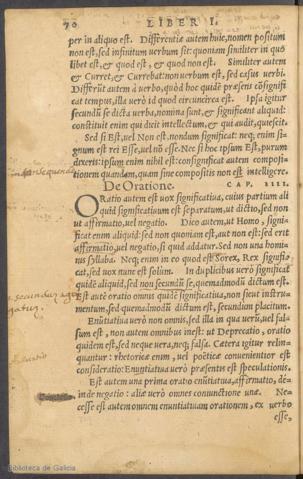 70 LIBER I.
per in aliquo est. Differentiæ autem huic, nomen positum
non est, sed infinitum uerbum sit: quoniam similiter in quo
libet est, & quod est, & quod non est. Similiter autem
& Curret, & Currebat: non uerbum est, sed casus uerbi.
Differūt autem à uerbo, quòd hoc quidē præsens cōsignifi
cat tempus, illa uerò id quod circuncirca est. Ipsa igitur
secundū se dicta uerba, nomina sunt, & significant aliquid:
constituit enim qui dicit intellectum, & qui audit, quiescit.
Sed si Est, uel Non est. nondum significat: neq; enim si-
gnum est rei Esse, uel nō esse. Nec si hoc ipsum Est, purum
dixeris: ipsum enim nihil est: consignificat autem composi-
tionem quandam, quam sine compositis non est intelligere.
De Oratione. CAP. IIII.
ORatio autem est uox significatiua, cuius partium ali
quid significatiuum est separatum, ut dictio, sed non
ut affirmatio, uel negatio. Dico autem, ut Homo, signi-
ficat enim aliquid: sed non quoniam est, aut non est: sed erit
affirmatio, uel negatio, si quid addatur. Sed non una homi-
nis syllaba. Neq; enim in eo quod est Sorex, Rex signifi-
cat, sed uox nunc est solùm. In duplicibus uerò significat
quidē aliquid, sed non secundū se, quemadmodū dictum est.
Est autē oratio omnis quidē significatiua, non sicut instru
mentum, sed quemadmodū dictum est, secundum placitum.
Enūtiatiua uerò non omnis, sed illa in qua uerū, uel fal-
sum est, non autem omnibus inest: ut Deprecatio, oratio
quidem est, sed neque uera, neq; falsa. Cæteræ igitur relin-
quantur: rhetoricæ enim, uel poëticæ conuenientior est
consideratio: Enuntiatiua uerò præsentis est speculationis.
Est autem una prima oratio enūtiatiua, affirmatio, de-
inde negatio: aliæ uerò omnes coniunctione unæ. Ne-
cesse est autem omnem enuntiatiuam orationem, ex uerbo
esse,
Biblioteca de Galicia